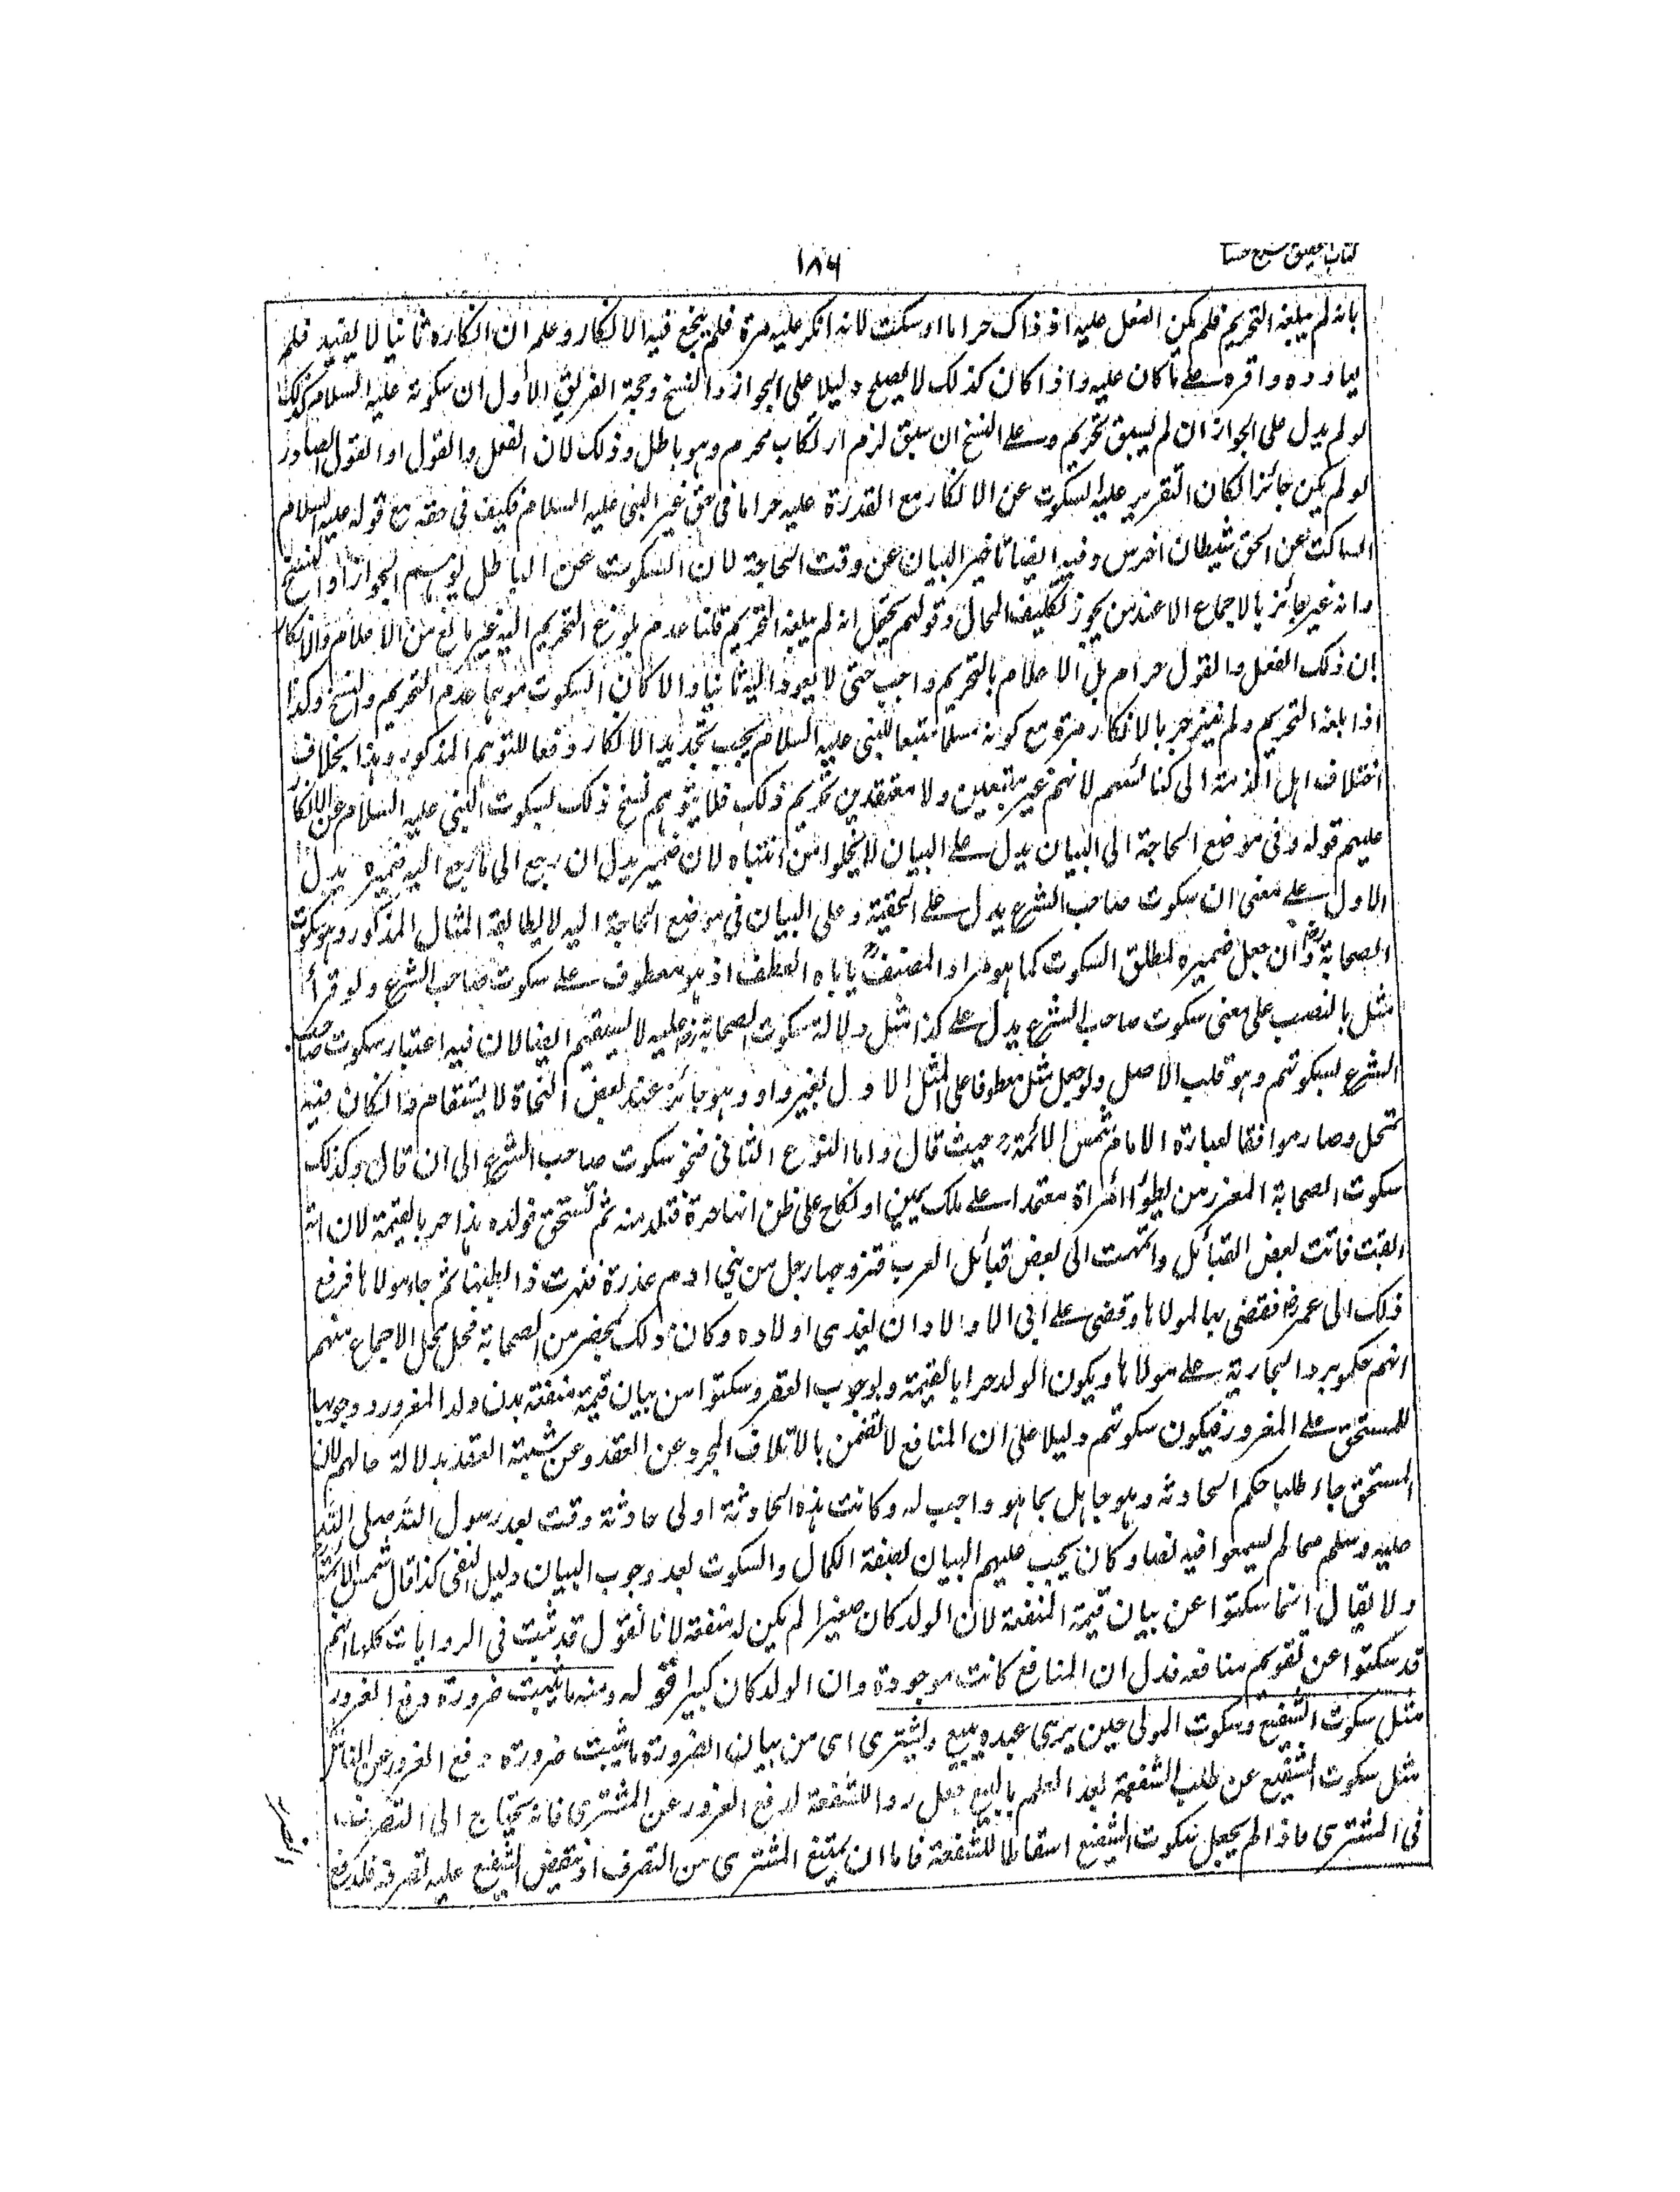 كتاب التحقيق شرح حسا
١٨٦
بانه لم يبلغه التحريم فلم يكن الفعل عليه اذ ذاك حراما او سكت لانه انكر عليه مرة فلم ينجع فيه الانكار وعلم ان انكاره ثانيا لا يفيد فلم
يعاوده واقره على ما كان عليه واذا كان كذلك لا يصلح دليلا على الجواز والنسخ وحجة الفريق الاول ان سكوته عليه السلام كذلك
لو لم يدل على الجواز ان لم يسبق تحريم وعلى النسخ ان سبق لزم ارتكاب محرم وهو باطل وذلك لان الفعل والقول او القول الصادر
لو لم يكن جائزا لكان التقرير عليه السكوت عن الانكار مع القدرة عليه حراما فى حق غير النبى عليه السلام فكيف فى حقه مع قوله عليه السلام
الساكت عن الحق شيطان اخرس وفيه ايضا تاخير البيان عن وقت الحاجة لان السكوت عن الباطل يوهم الجواز او النسخ
وانه غير جائز بالاجماع الا عند من يجوز تكليف المحال وقولهم يحتمل انه لم يبلغه التحريم قلنا عدم بلوغ التحريم اليه غير مانع من الاعلام والانكار
ان ذلك الفعل والقول حرام بل الاعلام بالتحريم واجب حتى لا يعود اليه ثانيا والا كان السكوت موهما عدم التحريم والنسخ وكذا
اذا بلغه التحريم ولم ينزجر بالانكار مرة مع كونه مسلما متبعا للنبى عليه السلام يجب تجديد الانكار دفعا للتوهم المذكور وهذا بخلاف
اختلاف اهل الذمة الى كنائسهم لانهم غير متبعين ولا معتقدين تحريم ذلك فلا يتوهم نسخ ذلك بسكوت النبى عليه السلام عن الانكار
عليهم قوله وفى موضع الحاجة الى البيان يدل على البيان لا يخلوا من اشتباه لان ضمير يدل ان رجع الى ما رجع اليه ضميره يدل
الاول على معنى ان سكوت صاحب الشرع يدل على الحقية وعلى البيان فى موضع الحاجة اليه لا يطابقه المثال المذكور وهو سكوت
الصحابة رضـ وان جعل ضميره لمطلق السكوت كما هو مراد المصنف رح ياباه العطف اذ هو معطوف على سكوت صاحب الشرع ولو قرأ
مثل بالنصب على معنى سكوت صاحب الشرع يدل على كذا مثل دلالة سكوت الصحابة رضـ عليه لا يستقيم ايضا لان فيه اعتبار سكوت صاحب
الشرع بسكوتهم وهو قلب الاصل ولو جعل مثل معطوفا على المثل الاول بغير واو وهو جائز عند بعض النحاة لاستقام وان كان فيه
تمحل وصار موافقا لعبارة الامام شمس الائمة رح حيث قال واما النوع الثانى فنحو سكوت صاحب الشرع الى ان قال وكذلك
سكوت الصحابة المغرور من يطوء امرأة معتمدا على ملك يمين او نكاح على ظن انها حرة فتلد منه ثم تستحق فولده هذا حر بالقيمة لان امة
ابقت فاتت بعض القبائل وانتهت الى بعض قبائل العرب فتزوجها رجل من بني عذرة فنثرت ذا بطنها ثم جاء مولاها فرفع
ذلك الى عمر رضـ فقضى بها لمولاها وقضى على ابى الاولاد ان يفدى اولاده وكان ذلك بمحضر من الصحابة فحل محل الاجماع منهم
انهم حكموا برد الجارية على مولاها ويكون الولد حرا بالقيمة وبوجوب العقر وسكتوا من بيان قيمة منفعة بدن ولد المغرور ووجوبها
للمستحق على المغرور فيكون سكوتهم دليلا على ان المنافع لا تضمن بالاتلاف المجرد عن العقد وعن شبهة العقد بدلالة حالهم لان
المستحق جاء طلبا حكم الحادثة وهو جاهل بما هو واجب له وكانت هذه الحادثة اولى حادثة وقعت بعد رسول الله صلى الله
عليه وسلم مما لم يسمعوا فيه نصا وكان يجب عليهم البيان بصفة الكمال والسكوت بعد وجوب البيان دليل النفى كذا قال شمس الائمة
ولا يقال انما سكتوا عن بيان قيمة المنفعة لان الولد كان صغيرا لم يكن له منفعة لانا نقول قد ثبت فى الروايات كلها انهم
قد سكتوا عن تقويم منافعه فدل ان المنافع كانت موجودة وان الولد كان كبيرا قوله ومنه ما يثبت ضرورة دفع الغرور
مثل سكوت الشفيع وسكوت المولى حين يرى عبده يبيع ويشترى اى من بيان الضرورة ما يثبت ضرورة دفع الغرور عن الناس
مثل سكوت الشفيع عن طلب الشفعة بعد العلم بالبيع جعل ردا للشفعة لدفع الغرور عن المشترى فانه يحتاج الى التصرف
فى المشترى فاذا لم يجعل سكوت الشفيع اسقاطا للشفعة فاما ان يمتنع المشترى من التصرف او ينقض الشفيع عليه تصرفه فلدفع